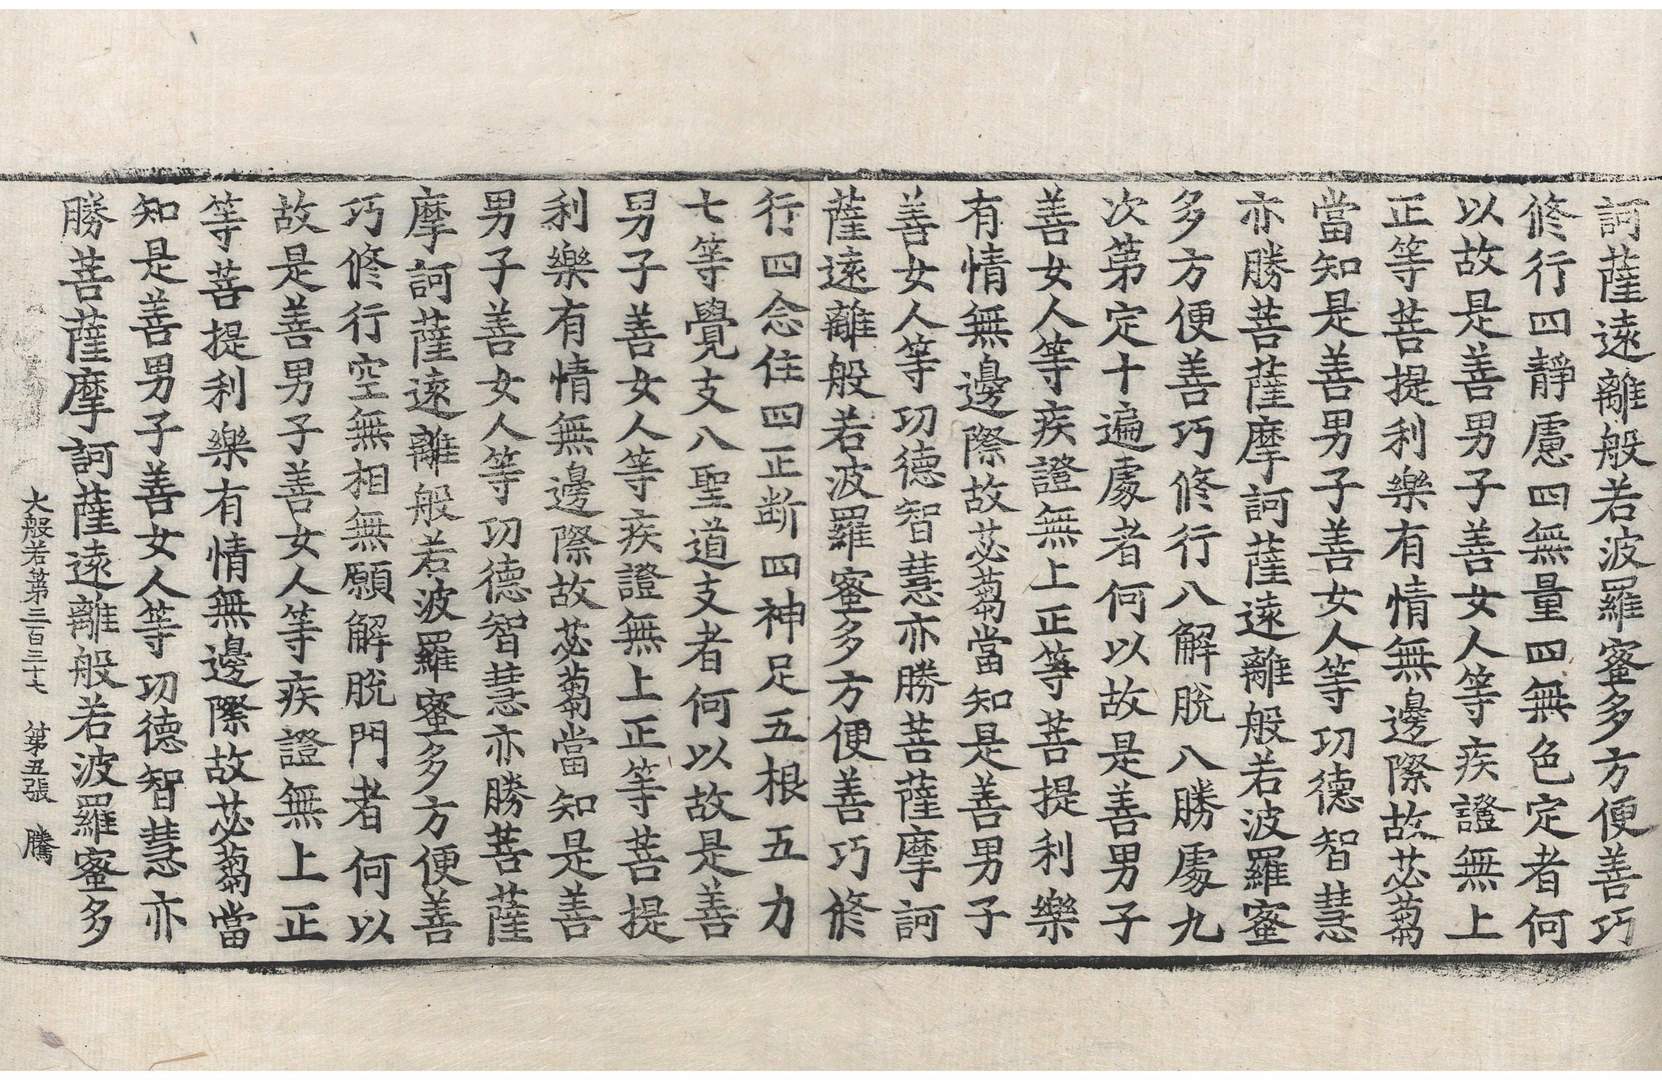 訶薩遠離般若波羅蜜多方便善巧
修行四靜慮四無量四無色定者何
以故是善男子善女人等疾證無上
正等菩提利樂有情無邊際故苾蒭
當知是善男子善女人等功德智慧
亦勝菩薩摩訶薩遠離般若波羅蜜
多方便善巧修行八解脫八勝處九
次第定十遍處者何以故是善男子
善女人等疾證無上正等菩提利樂
有情無邊際故苾蒭當知是善男子
善女人等功德智慧亦勝菩薩摩訶
薩遠離般若波羅蜜多方便善巧修
行四念住四正断四神足五根五力
七等覺支八聖道支者何以故是善
男子善女人等疾證無上正等菩提
利樂有情無邊際故苾蒭當知是善
男子善女人等功德智慧亦勝菩薩
摩訶薩遠離般若波羅蜜多方便善
巧修行空無相無願解脫門者何以
故是善男子善女人等疾證無上正
等菩提利樂有情無邊際故苾蒭當
知是善男子善女人等功德智慧亦
勝菩薩摩訶薩遠離般若波羅蜜多
大般若第三百三十七 第五張 騰